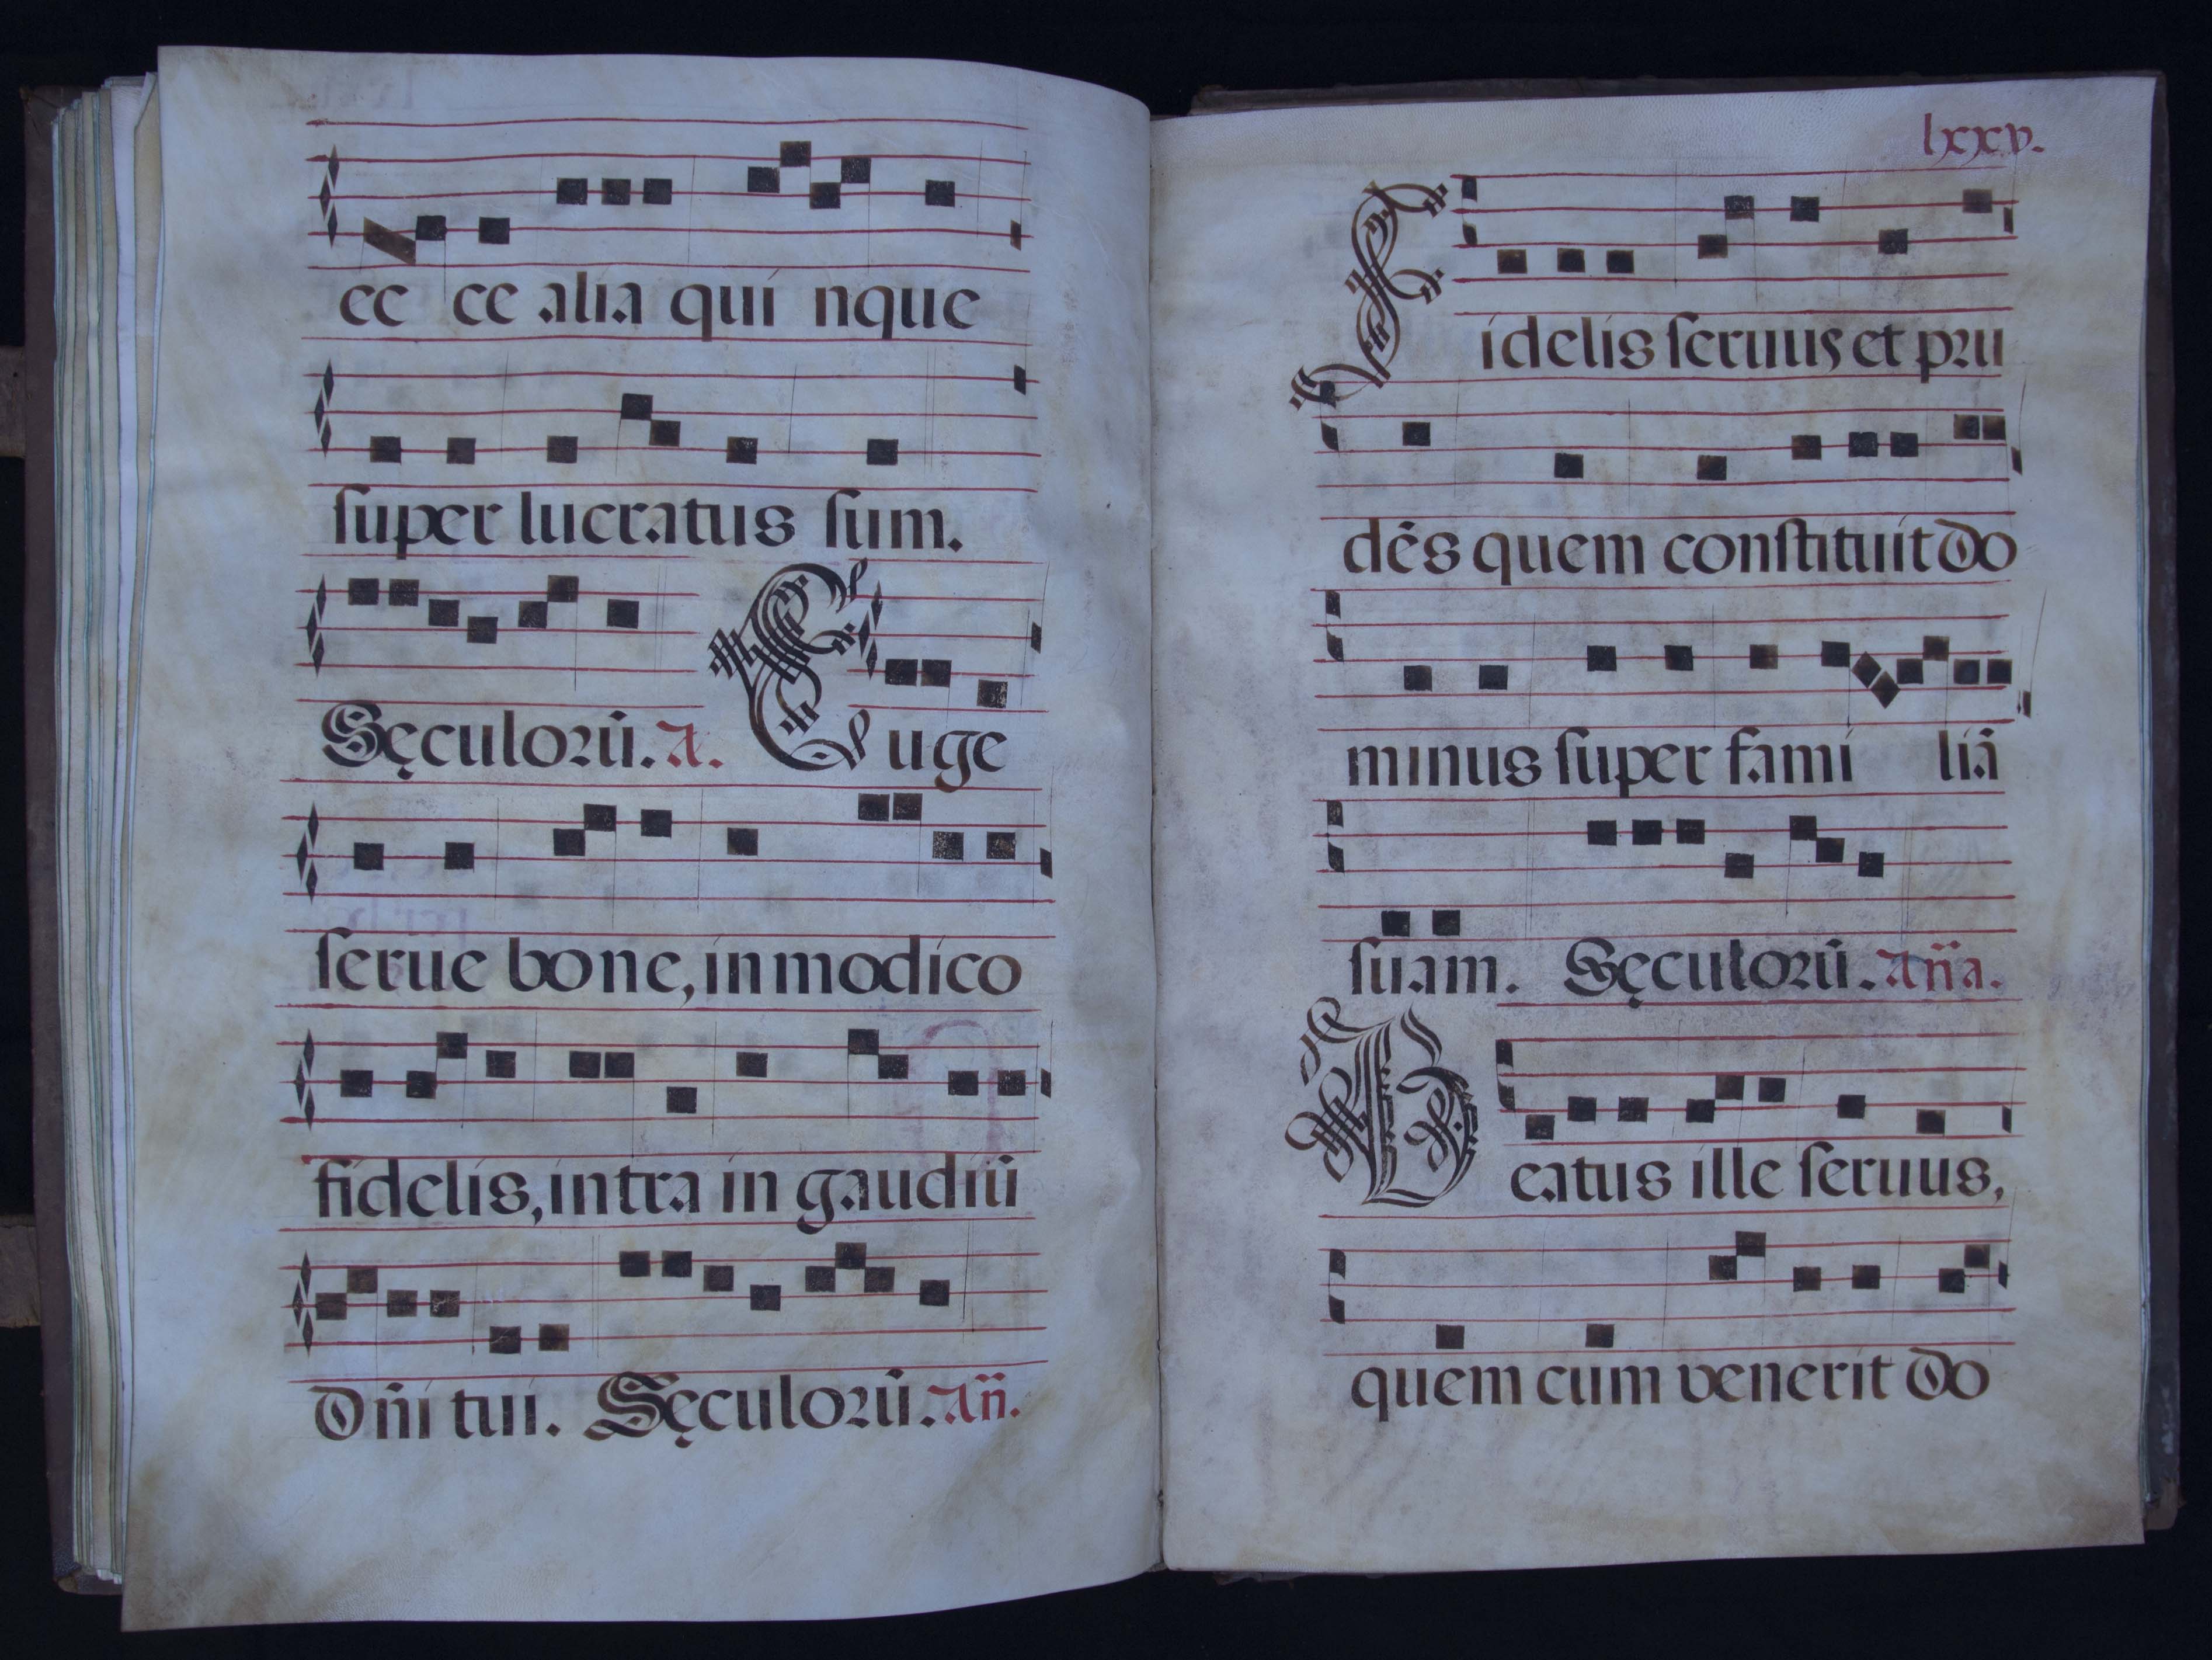 ec ce alia qui nque
ſuper lucratus ſum.
Sęculorū. A. Euge
ſerue bone, in modico
fidelis, intra in gaudiū
Dñi tui. Sęculorū. Añ.
lxxv.
Fidelis ſeruus et pru
dēs quem conſtituit do
minus ſuper fami liā
ſuam. Sęculorū. Aña.
Beatus ille ſeruus,
quem cum venerit Do